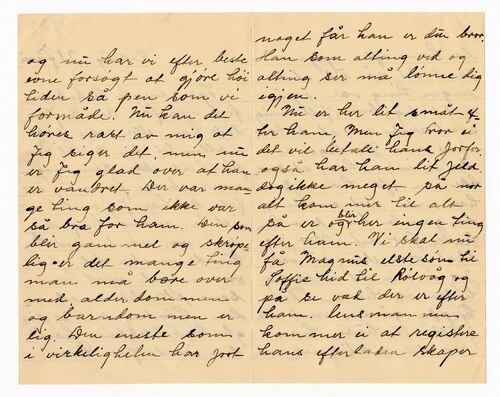 og nu har vi efter beste
evne forsøgt at gjøre høi
tiden så pen som vi
formåde. Nu kan det
høres rart av mig at
jeg siger det, men nu
er jeg glad over at han
er vandret. Der var man-
ge ting som ikke var
så bra for ham. Den som
blir gammel og skrøpe
lig er det mange ting
man må bære over
med, alderdommen
og barndommen er
lig. Den eneste som
i virkeligheten har gort
noget får han er du bror.
Han som alting ved og
alting ser må lønne dig
igjen.
Nu er her lit småt
her ham, Men jeg tror i
det vil befall hans
også har han lit gjeld
dog ikke meget på
alt kommer til alt
på er og blir her ingen ting
efter ham. Vi skal nu
få Magnus elste søn til
Soffie hid til Røsvåg og
på se vad der er efter
ham. Lensman
kommer ei at registere
hans efterladen skaper